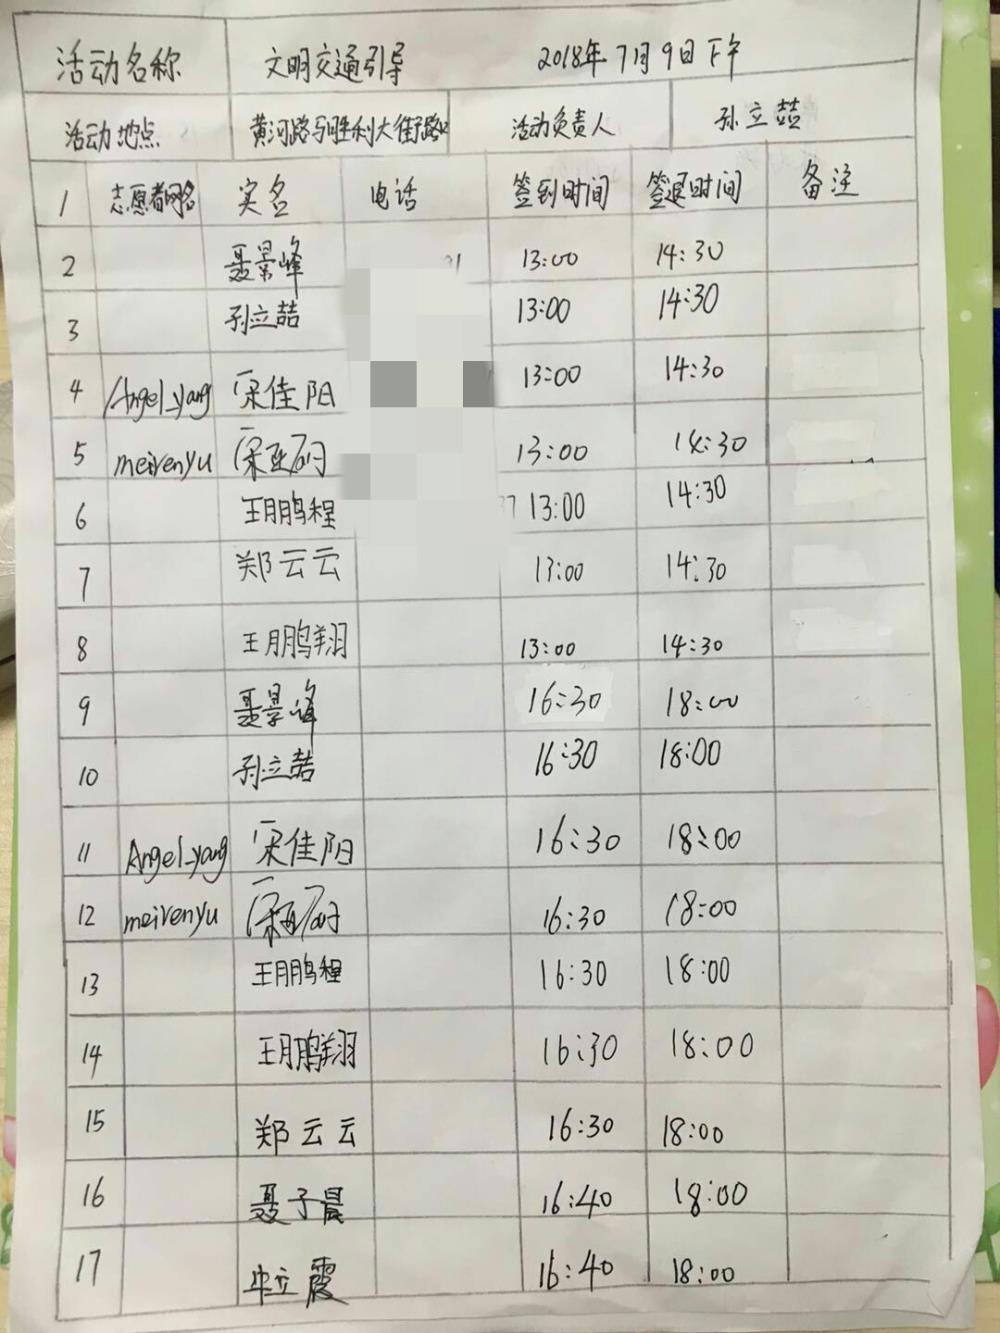 活动名称 文明交通引导 2018年7月9日下午
活动地点 黄河路与胜利大街路口 活动负责人 孙立喆
1 志愿者网名 实名 电话 签到时间 签退时间 备注
2 聂景峰 13:00 14:30
3 孙立喆 13:00 14:30
4 Angel_yang 宋佳阳 13:00 14:30
5 meirenyu 宋延 13:00 14:30
6 王鹏程 13:00 14:30
7 郑云云 13:00 14:30
8 王鹏翔 13:00 14:30
9 聂景峰 16:30 18:00
10 孙立喆 16:30 18:00
11 Angel_yang 宋佳阳 16:30 18:00
12 meirenyu 16:30 18:00
13 王鹏程 16:30 18:00
14 王鹏翔 16:30 18:00
15 郑云云 16:30 18:00
16 聂子晨 16:40 18:00
17 牛立霞 16:40 18:00